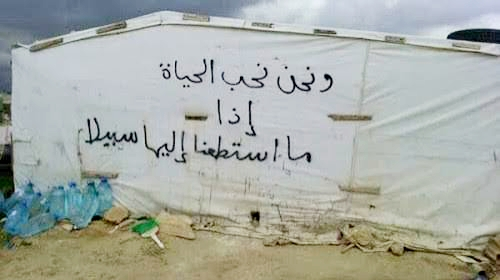 ونحن نحب الحياة
إذا
ما استطعنا إليها سبيلا